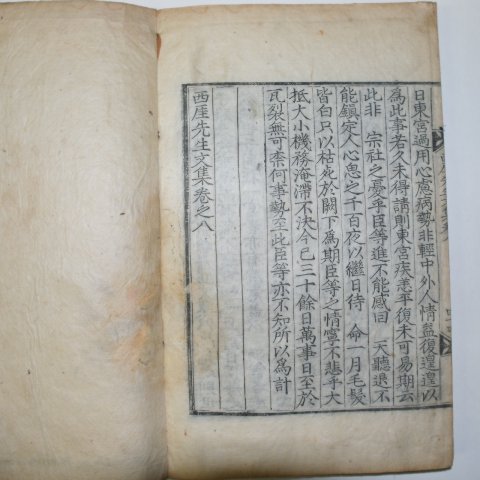 日東宮過用心慮病勢非輕中外人情益復遑遑以
爲此事若久未得請則東宮疾恙平復未可易期云
此非 宗社之憂乎臣等進不能感回 天聽退不
能鎭定人心思之千百夜以繼日待 命一月毛髮
皆白只以枯死於闕下爲期臣等之情寧不悲乎大
抵大小機務淹滯不決今已三十餘日萬事日至於
瓦裂無可柰何事勢至此臣等亦不知所以爲計
西厓先生文集卷之八